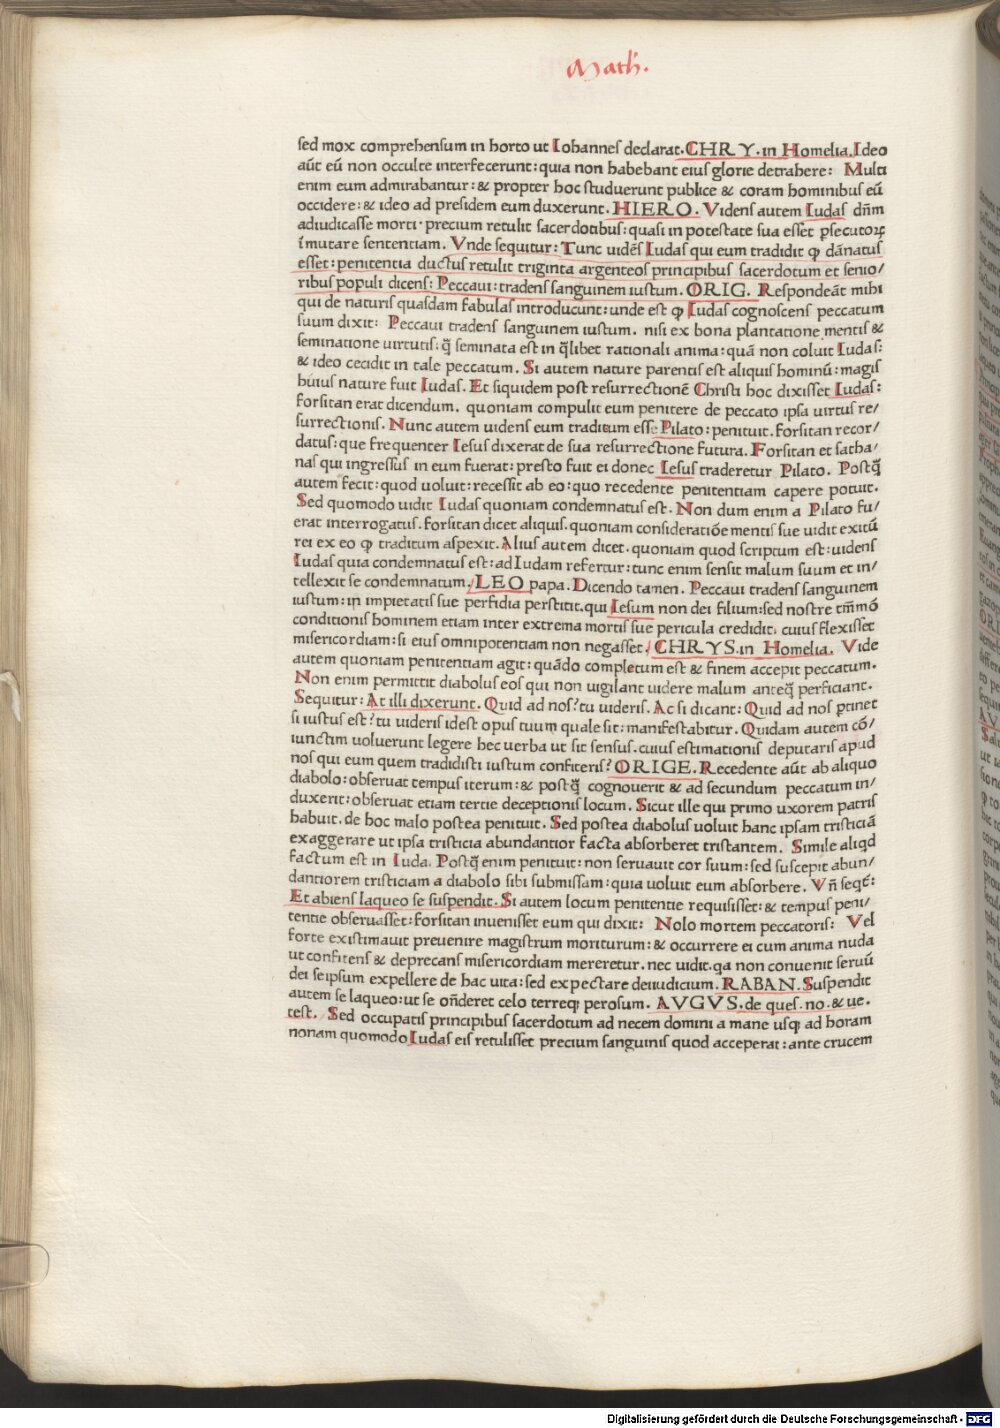 Math.
sed mox comprehensum in horto ut Iohannes declarat. CHRY. in Homelia. Ideo
aūt eū non occulte interfecerunt: quia non habebant eius glorie detrahere: Multi
enim eum admirabantur: & propter hoc studuerunt publice & coram hominibus eū
occidere: & ideo ad presidem eum duxerunt. HIERO. Videns autem Iudas dn̄m
adiudicasse morti. precium retulit sacerdotibus: quasi in potestate sua esset p̱secutoꝝ
īmutare sententiam. Vnde sequitur: Tunc uidēs Iudas qui eum tradidit ꝙ dānatus
esset: penitentia ductus retulit triginta argenteos principibus sacerdotum et senio/
ribus populi dicens: Peccaui: tradens sanguinem iustum. ORIG. Respondeāt mihi
qui de naturis quasdam fabulas introducunt: unde est ꝙ Iudas cognoscens peccatum
suum dixit: Peccaui tradens sanguinem iustum. nisi ex bona plantatione mentis &
seminatione uirtutis: q̄ seminata est in q̄libet rationali anima: quā non coluit Iudas:
& ideo cecidit in tale peccatum. Si autem nature parentis est aliquis hominū: magis
huius nature fuit Iudas. Et siquidem post resurrectionē Christi hoc dixisset Iudas:
forsitan erat dicendum. quoniam compulit eum penitere de peccato ipsa uirtus re/
surrectionis. Nunc autem uidens eum traditum esse Pilato: penituit. forsitan recor/
datus: que frequenter Iesus dixerat de sua resurrectione futura. Forsitan et satha/
nas qui ingressus in eum fuerat: presto fuit ei donec Iesus traderetur Pilato. Postq̄
autem fecit: quod uoluit: recessit ab eo: quo recedente penitentiam capere potuit.
Sed quomodo uidit Iudas quoniam condemnatus est. Non dum enim a Pilato fu/
erat interrogatus. forsitan dicet aliquis. quoniam consideratiōe mentis sue uidit exitū
rei ex eo ꝙ traditum aspexit. Alius autem dicet. quoniam quod scriptum est: uidens
Iudas quia condemnatus est: ad Iudam refertur: tunc enim sensit malum suum et in/
tellexit se condemnatum. LEO papa. Dicendo tamen. Peccaui tradens sanguinem
iustum: in impietatis sue perfidia perstitit. qui Iesum non dei filium: sed nostre tm̄mō
conditionis hominem etiam inter extrema mortis sue pericula credidit. cuius flexisset
misericordiam: si eius omnipotentiam non negasset. CHRYS. in Homelia. Vide
autem quoniam penitentiam agit: quādo completum est & finem accepit peccatum.
Non enim permittit diabolus eos qui non uigilant uidere malum anteq̄ perficiant.
Sequitur: At illi dixerunt. Quid ad nos? tu uideris. Ac si dicant: Quid ad nos p̱tinet
si iustus est? tu uideris idest opus tuum quale sit: manifestabitur. Quidam autem cō/
iunctim uoluerunt legere hec uerba ut sit sensus. cuius estimationis deputaris apud
nos qui eum quem tradidisti iustum confiteris? ORIGE. Recedente aūt ab aliquo
diabolo: obseruat tempus iterum: & postq̄ cognouerit & ad secundum peccatum in/
duxerit: obseruat etiam tertie deceptionis locum. Sicut ille qui primo uxorem patris
habuit. de hoc malo postea penituit. Sed postea diabolus uoluit hanc ipsam tristiciā
exaggerare ut ipsa tristicia abundantior facta absorberet tristantem. Simile aliqd
factum est in Iuda. Postq̄ enim penituit: non seruauit cor suum: sed suscepit abun/
dantiorem tristiciam a diabolo sibi submissam: quia uoluit eum absorbere. Vn̄ seqt̄:
Et abiens laqueo se suspendit. Si autem locum penitentie requisisset: & tempus peni/
tentie obseruasset: forsitan inuenisset eum qui dixit: Nolo mortem peccatoris: Vel
forte existimauit preuenire magistrum moriturum: & occurrere ei cum anima nuda
ut confitens & deprecans misericordiam mereretur. nec uidit. qa non conuenit seruū
dei seipsum expellere de hac uita: sed expectare dei iudicium. RABAN. Suspendit
autem se laqueo: ut se on̄deret celo terreqꝫ perosum. AVGVS. de ques. no. & ue.
test. Sed occupatis principibus sacerdotum ad necem domini a mane usqꝫ ad horam
nonam quomodo Iudas eis retulisset precium sanguinis quod acceperat: ante crucem
Digitalisierung gefördert durch die Deutsche Forschungsgemeinschaft - DFG